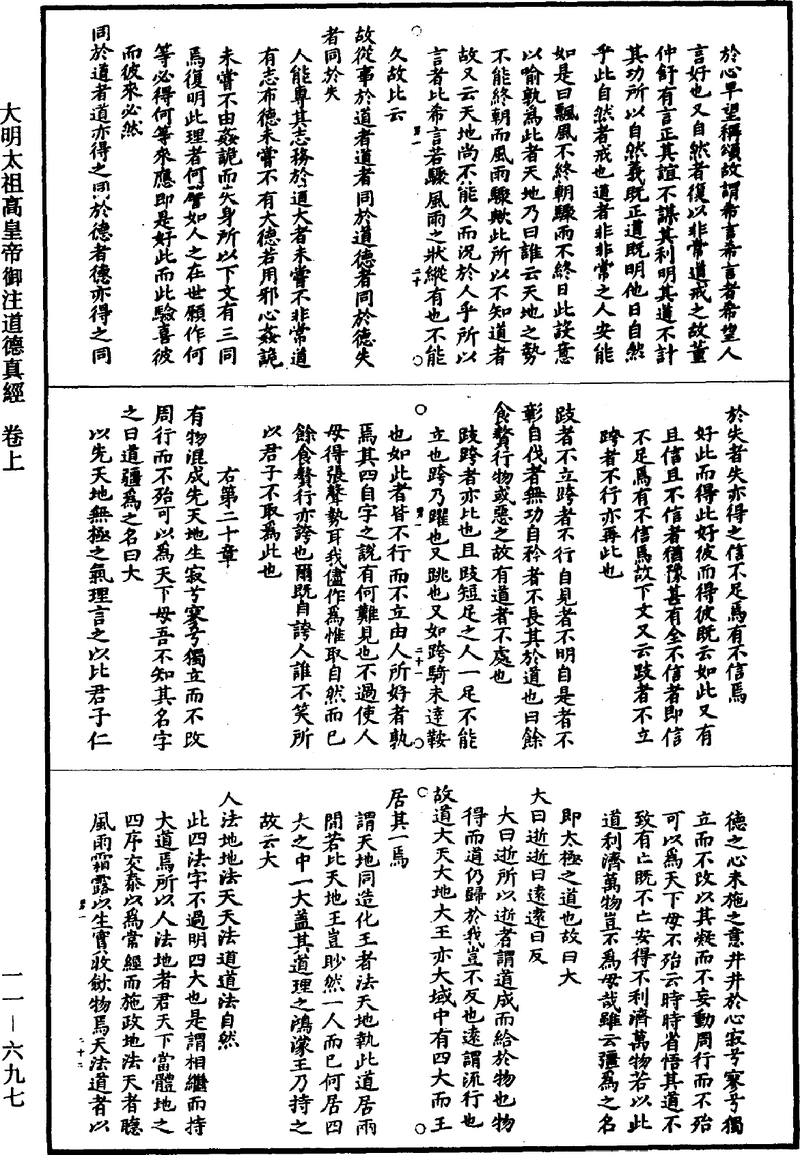 大明太祖高皇帝御注道德真經　卷上
一一—六九七
於心早望稱頌故謂希言希言者希望人
言好也又自然者復以非常道戒之故董
仲舒有言正其誼不謀其利明其道不計
其功所以自然義既正道既明他日自然
乎此自然者戒也道者非非常之人安能
如是曰飄風不終朝驟雨不終日此設意
以喻孰為此者天地乃曰誰云天地之勢
不能終朝而風雨驟歟此所以不知道者
故又云天地尚不能久而況於人乎所以
言者比希言若驟風雨之狀縱有也不能
久故比云
故從事於道者道者同於道德者同於德失
者同於失
人能專其志務於道大者未嘗不非常道
有志布德未嘗不有大德若用邪心姦詭
未嘗不由姦詭而失身所以下文有三同
焉復明此理者何譬如人之在世願作何
等必得何等來應即是好此而此驗喜彼
而彼來必然
同於道者道亦得之同於德者德亦得之同
於失者失亦得之信不足焉有不信焉
好此而得此好彼而得彼既云如此又有
且信且不信者猶豫甚有全不信者即信
不足焉有不信焉故下文又云跂者不立
跨者不行亦再比也
跂者不立跨者不行自見者不明自是者不
彰自伐者無功自矜者不長其於道也曰餘
食贅行物或惡之故有道者不處也
跂跨者亦比也且跂短足之人一足不能
立也跨乃躍也又跳也又如跨騎未達鞍
也如此者皆不行而不立由人所好者孰
焉其四自字之說有何難見也不過使人
毋得張聲勢耳我儘作為惟取自然而已
餘食贅行亦誇也爾既自誇人誰不笑所
以君子不取為此也
右第二十章
有物混成先天地生寂兮寥兮獨立而不改
周行而不殆可以為天下母吾不知其名字
之曰道彊為之名曰大
以先天地無極之氣理言之以比君子仁
德之心未施之意井井於心寂兮寥兮獨
立而不改以其凝而不妄動周行而不殆
可以為天下母不殆云時時省悟其道不
致有亡既不亡安得不利濟萬物若以此
道利濟萬物豈不為母哉雖云彊為之名
即太極之道也故曰大
大曰逝逝曰遠遠曰反
大曰逝所以逝者謂道成而給於物也物
得而道仍歸於我豈不反也遠謂流行也
故道大天大地大王亦大域中有四大而王
居其一焉
謂天地同造化王者法天地執此道居兩
間若比天地王豈眇然一人而已何居四
大之中一大蓋其道理之鴻濛王乃持之
故云大
人法地地法天天法道道法自然
此四法字不過明四大也是謂相繼而持
大道焉所以人法地者君天下當體地之
四序交泰以為常經而施政地法天者聽
風雨霜露以生實收斂物焉天法道者以